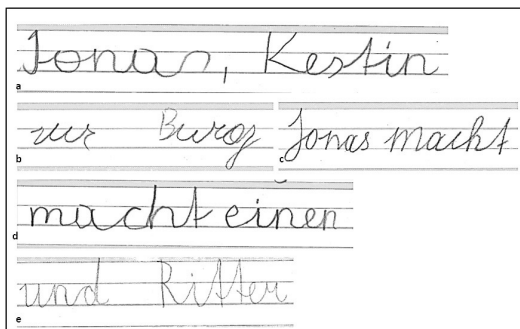 Jonas, Kestin
a
zur Burg
b
Jonas macht
c
macht einen
d
und Ritter
e